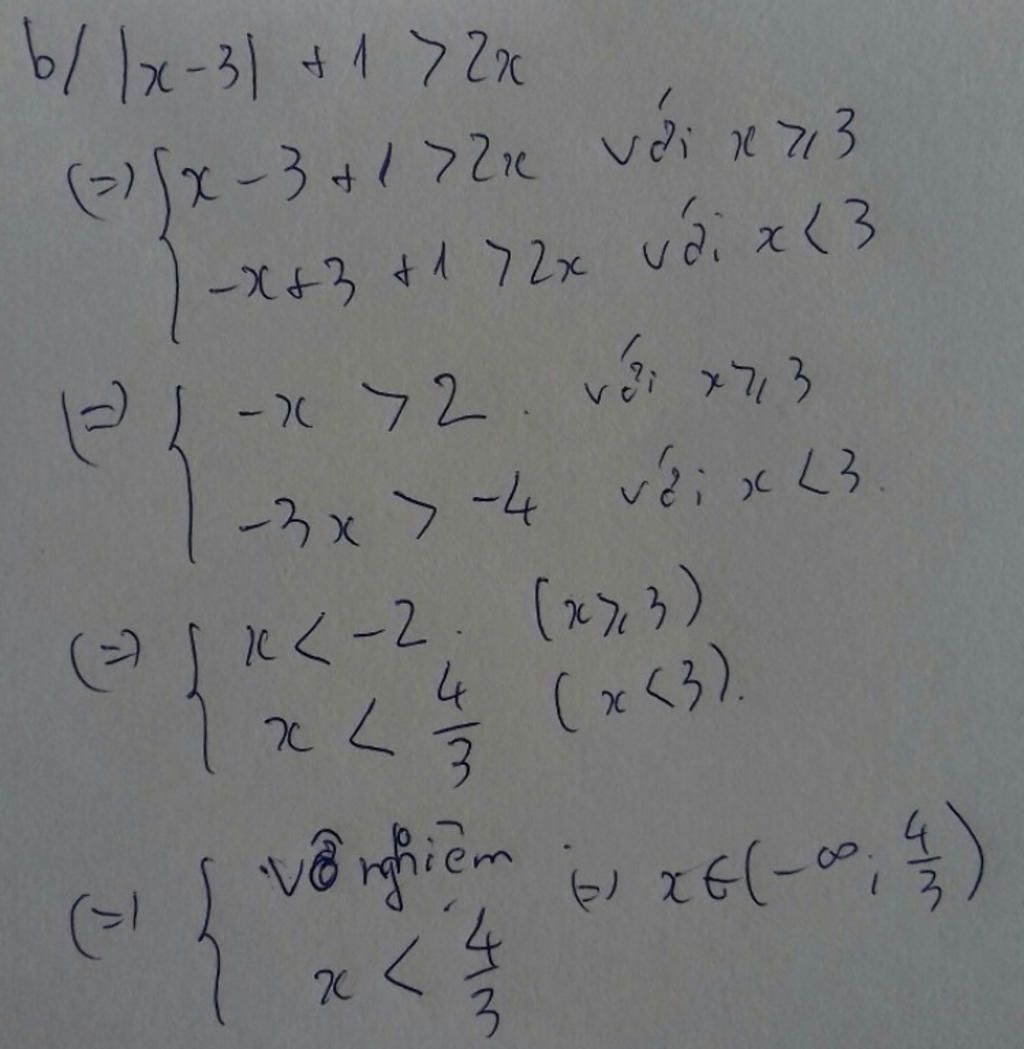 b/ |x-3| + 1 > 2x
(=) { x - 3 + 1 > 2x với x ⩾ 3
-x + 3 + 1 > 2x với x < 3
(=) { -x > 2 . với x ⩾ 3
-3x > -4 với x < 3.
(=) { x < -2 . (x ⩾ 3)
x < 4/3 (x < 3).
(=) { vô nghiệm (=) x ∈ (-∞; 4/3)
x < 4/3